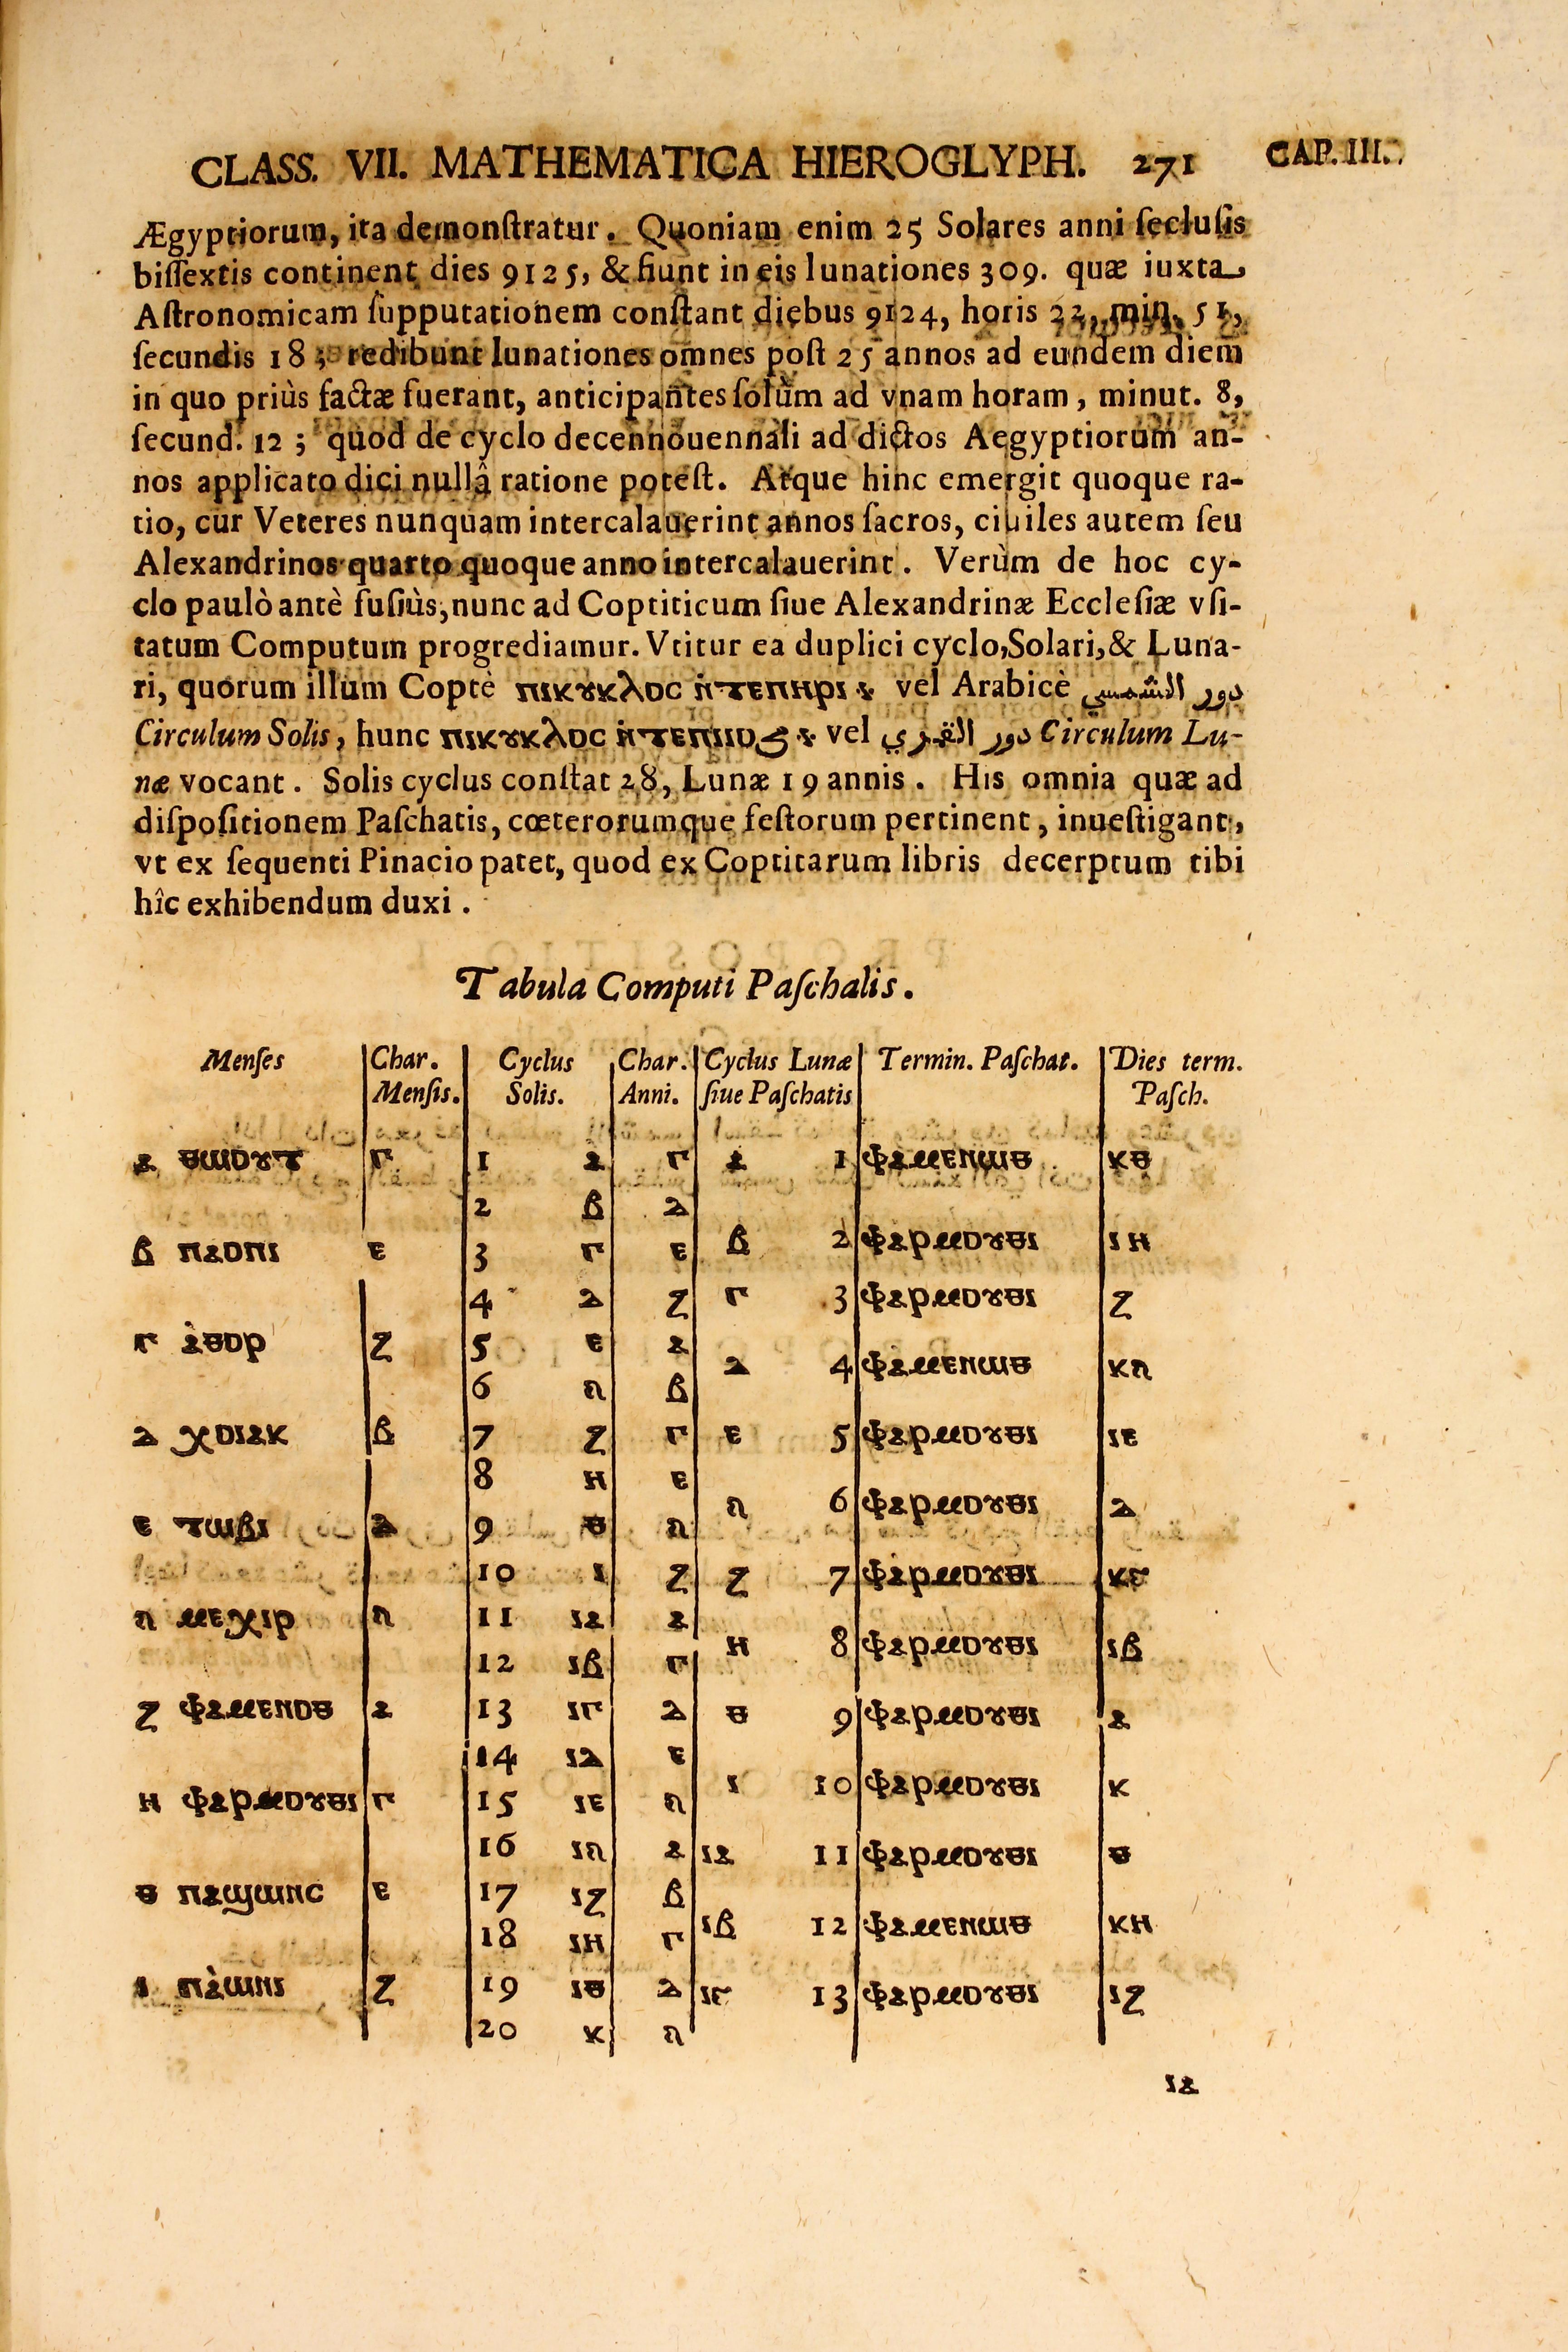 CLASS. VII. MATHEMATICA HIEROGLYPH. 271 CAP. III.
Ægyptiorum, ita demonſtratur. Quoniam enim 25 Solares anni ſecluſis
biſſextis continent dies 9125, & fiunt in eis lunationes 309. quæ iuxta
Aſtronomicam ſupputationem conſtant diebus 9124, horis 22, min. 51,
ſecundis 18; redibunt lunationes omnes poſt 25 annos ad eundem diem
in quo priùs factæ fuerant, anticipantes ſolùm ad vnam horam, minut. 8,
ſecund. 12; quod de cyclo decennouennali ad dictos Aegyptiorum an-
nos applicato dici nullâ ratione poteſt. Atque hinc emergit quoque ra-
tio, cur Veteres nunquam intercalauerint annos ſacros, ciuiles autem ſeu
Alexandrinos quarto quoque anno intercalauerint. Verùm de hoc cy-
clo paulò antè fuſiùs, nunc ad Coptiticum ſiue Alexandrinæ Eccleſiæ vſi-
tatum Computum progrediamur. Vtitur ea duplici cyclo, Solari, & Luna-
ri, quorum illum Coptè ⲡⲓⲕⲩⲕⲗⲟⲥ ⲛ̀ⲧⲉⲡⲏⲣⲓ vel Arabicè دور الشمسي
Circulum Solis, hunc ⲡⲓⲕⲩⲕⲗⲟⲥ ⲛ̀ⲧⲉⲡⲓⲓⲟϩ vel دور القمري Circulum Lu-
næ vocant. Solis cyclus conſtat 28, Lunæ 19 annis. His omnia quæ ad
diſpoſitionem Paſchatis, cœterorumque feſtorum pertinent, inueſtigant,
vt ex ſequenti Pinacio patet, quod ex Coptitarum libris decerptum tibi
hîc exhibendum duxi.
Tabula Computi Paſchalis.
Menſes Char. Menſis. Cyclus Solis. Char. Anni. Cyclus Lunæ ſiue Paſchatis Termin. Paſchat. Dies term. Paſch.
ⲁ ⲑⲱⲟⲩⲧ ⲅ 1 ⲁ ⲅ ⲁ 1 ⲫⲁⲙⲉⲛⲱⲑ ⲕⲑ
2 ⲃ ⲇ
ⲃ ⲡⲁⲟⲡⲓ ⲉ 3 ⲅ ⲉ ⲃ 2 ⲫⲁⲣⲙⲟⲩⲑⲓ ⲓⲏ
4 ⲇ ⲍ ⲅ 3 ⲫⲁⲣⲙⲟⲩⲑⲓ ⲍ
ⲅ ⲁ̀ⲑⲟⲣ ⲍ 5 ⲉ ⲁ
ⲇ 4 ⲫⲁⲙⲉⲛⲱⲑ ⲕⲋ
6 ⲋ ⲃ
ⲇ ⲭⲟⲓⲁⲕ ⲃ 7 ⲍ ⲅ ⲉ 5 ⲫⲁⲣⲙⲟⲩⲑⲓ ⲓⲉ
8 ⲏ ⲉ
ⲋ 6 ⲫⲁⲣⲙⲟⲩⲑⲓ ⲇ
ⲉ ⲧⲱⲃⲓ ⲇ 9 ⲑ ⲋ
10 ⲓ ⲍ ⲍ 7 ⲫⲁⲣⲙⲟⲩⲑⲓ
ⲋ ⲙⲉⲭⲓⲣ ⲋ 11 ⲓⲁ ⲁ
ⲏ 8 ⲫⲁⲣⲙⲟⲩⲑⲓ ⲓⲃ
12 ⲓⲃ ⲅ
ⲍ ⲫⲁⲙⲉⲛⲟⲑ ⲁ 13 ⲓⲅ ⲇ ⲑ 9 ⲫⲁⲣⲙⲟⲩⲑⲓ ⲁ
14 ⲓⲇ ⲉ
ⲓ 10 ⲫⲁⲣⲙⲟⲩⲑⲓ ⲕ
ⲏ ⲫⲁⲣⲙⲟⲩⲑⲓ ⲅ 15 ⲓⲉ ⲋ
16 ⲓⲋ ⲁ ⲓⲁ 11 ⲫⲁⲣⲙⲟⲩⲑⲓ ⲑ
ⲑ ⲡⲁϣⲱⲛⲥ ⲉ 17 ⲓⲍ ⲃ
ⲓⲃ 12 ⲫⲁⲙⲉⲛⲱⲑ ⲕⲏ
18 ⲓⲏ ⲅ
ⲓ ⲡⲁ̀ⲱⲛⲓ ⲍ 19 ⲓⲑ ⲇ ⲓⲅ 13 ⲫⲁⲣⲙⲟⲩⲑⲓ ⲓⲍ
20 ⲕ ⲋ
ⲓⲁ